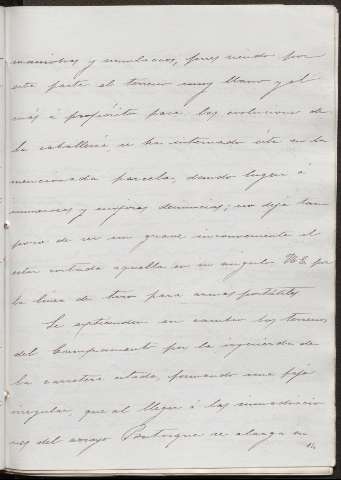 maniobras y simulacros, pues siendo por
esta parte el terreno muy llano y el
más á propósito para las evoluciones de
la caballería se ha internado ésta en la
mencionada parcela, dando lugar á
numerosas y enojosas denuncias; no deja tam
poco de ser un grave inconveniente el
estar cortada aquella en su ángulo N.E. por
la línea de tiro para armas portátiles
Se extienden en cambio los terrenos
del Campamento por la izquierda de
la carretera citada, formando una faja
irregular, que al llegar á las inmediacio
nes del arroyo se alarga en